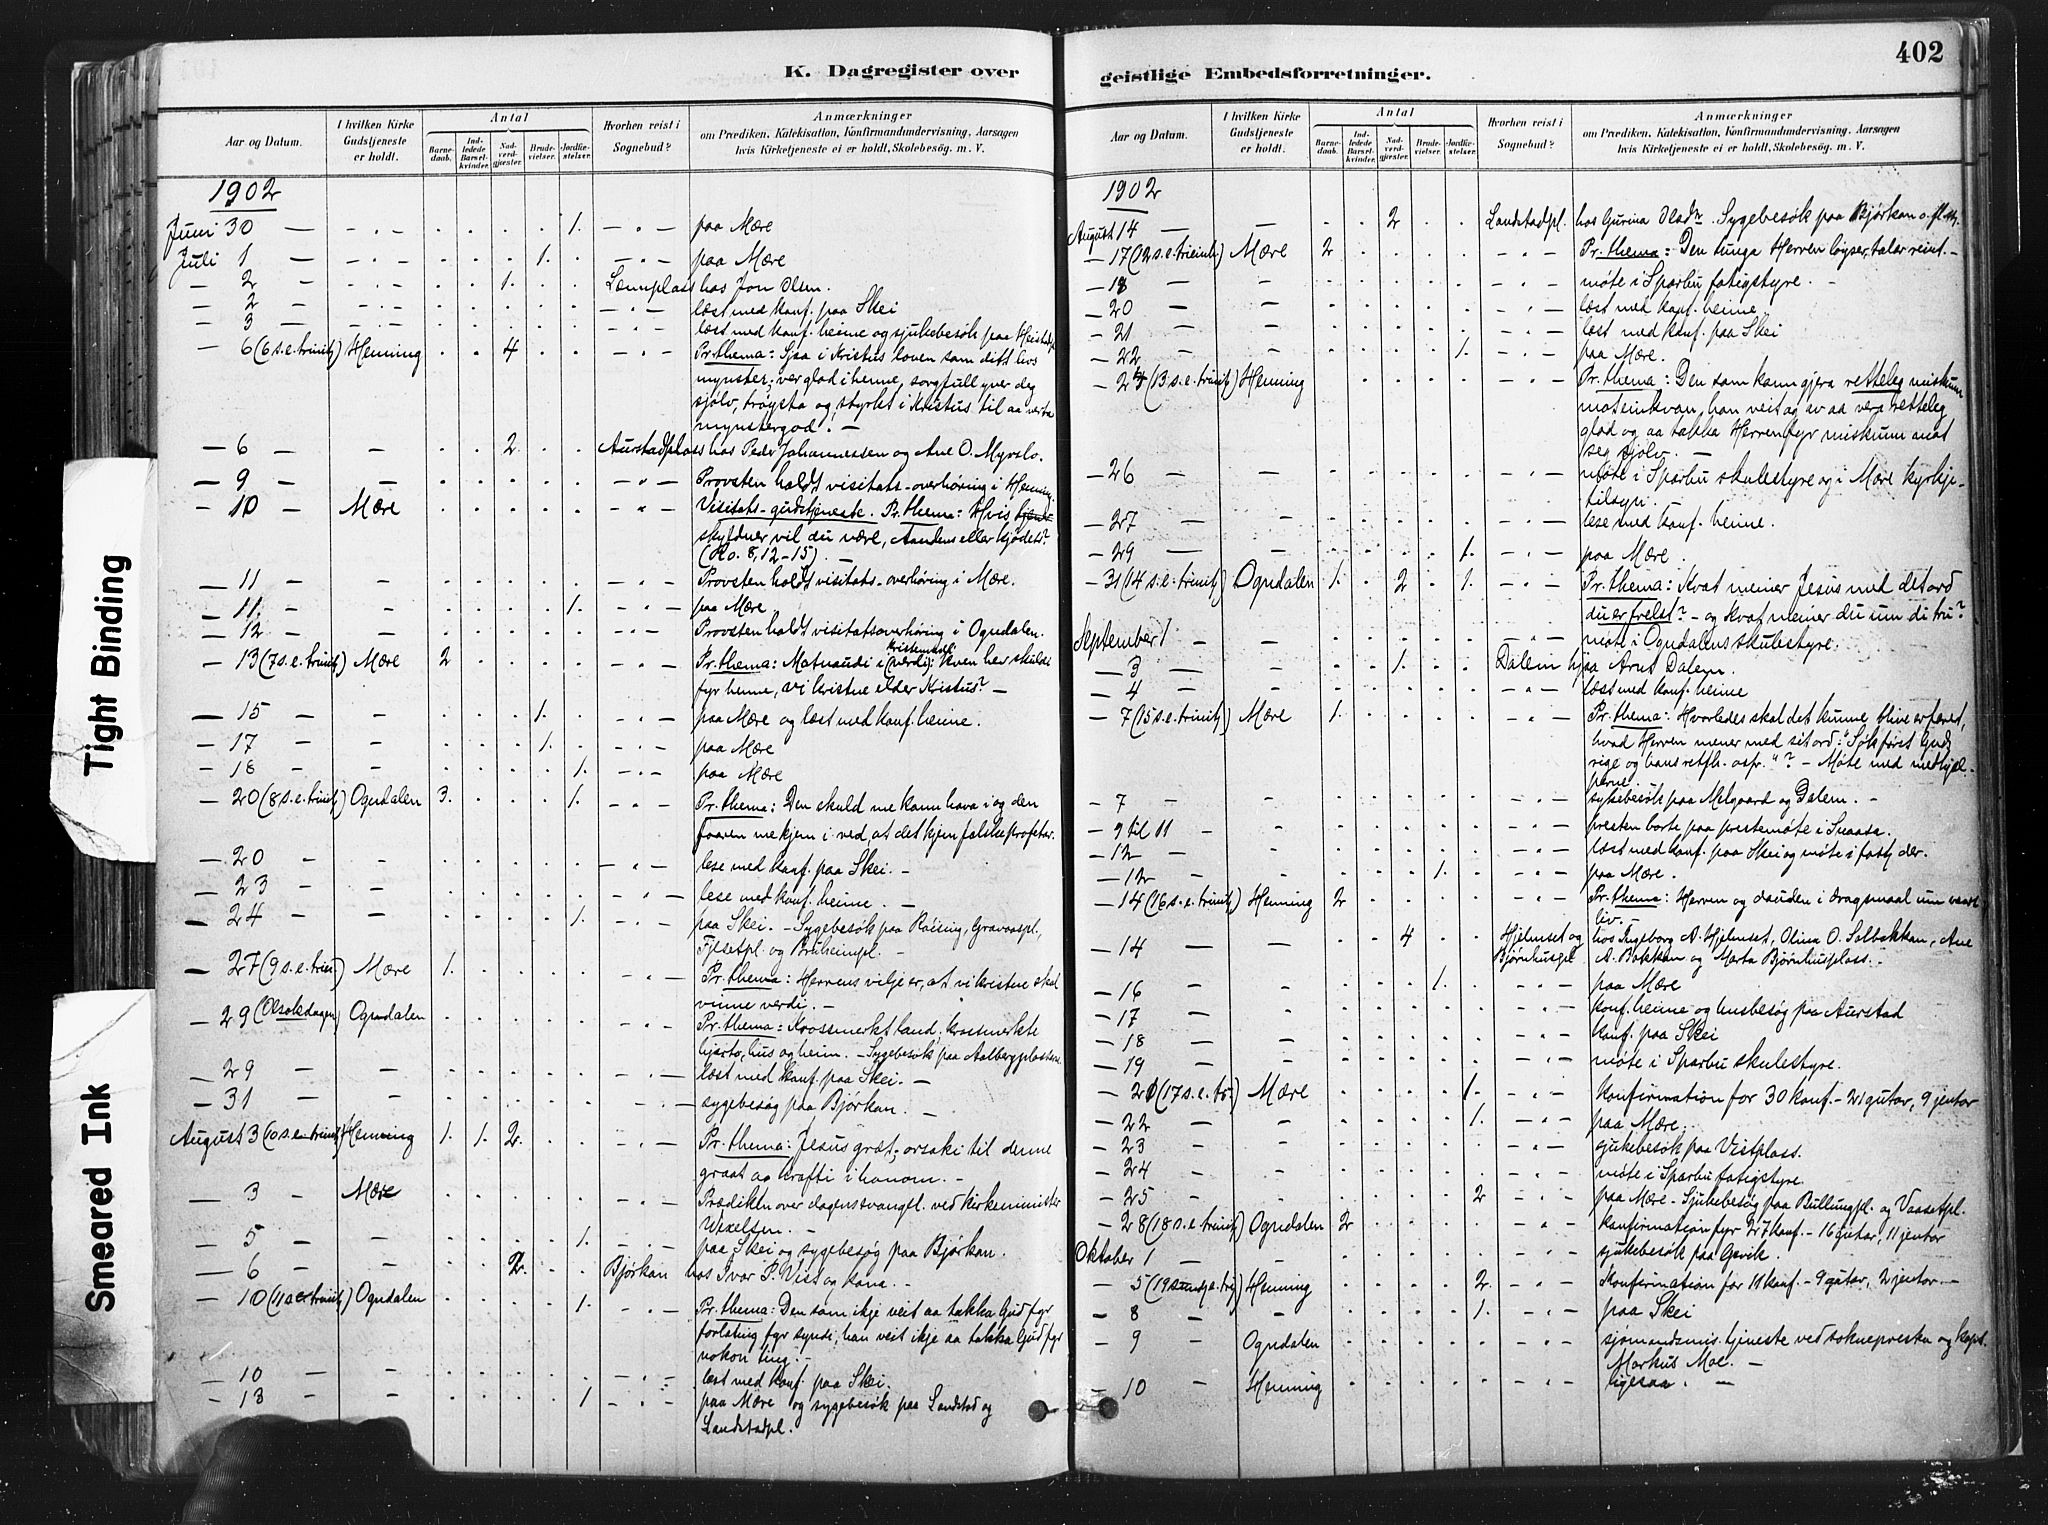 402
K. Dagregister over
geistlige Embedsforretninger.
Aar og Datum.
I hvilken Kirke Gudstjeneste er holdt.
Antal
Barnedaab.
Indledede Barselkvinder.
Nadverdgjester.
Brudevielser.
Jordfæstelser.
Hvorhen reist i Sognebud?
Anmærkninger
om Prædiken, Katekisation, Konfirmandundervisning, Aarsagen
hvis Kirketjeneste ei er holdt, Skolebesøg. m. V.
1902
Juni 30 — 1. paa Mære
Juli 1 — 1. paa Mære
— 2 1. Lænnplass hos Jon Olsen.
— 2 læst med konf. paa Skei
— 3 læst med konf. heime og sjukebesøk paa
— 6 (6 s.e. trinit) Henning 4 Pr. thema: Sjaa i Kristus loven som ditt livs
mynster; ver glad i henne, sorgfull yver deg
sjølv, trøysta og styrkt i Kristus til aa verta
mynstergod! —
— 6 — 2. Aurstadplass hos Peder Johannessen og Ane O. Myvslo.
— 9 — Provsten holdt visitats-overhøring i Henning.
— 10 — Mære Visitats-gudstjeneste. Pr. thema: Hvis
skyldner vil du være, Aandens eller kjødets?
(Ro. 8, 12–15). —
— 11 — Provsten holdt visitats-overhøring i Mære.
— 11. — 1. paa Mære
— 12 — Provsten holdt visitatsoverhøring i Ogndalen.
— 13 (7 s.e. trinit) Mære 2 Pr. thema: Matnaudi i verdi: kven hev skuldi
fyr henne, vi kristne elder Kristus? —
— 15 — 1. paa Mære og læst med konf. heime.
— 17 — 1. paa Mære
— 18 — 1. paa Mære
— 20 (8 s.e. trinit) Ogndalen 3. 1. Pr. thema: Den skuld me kann hava i og den
faaren me kjem i ved, at det kjem falske profetar.
— 20 — lese med konf. paa Skei. —
— 23 — lese med konf. heime. —
— 24 — 1. paa Skei. — Sygebesøk paa Røising, Gravaaspl.,
Fjesetpl. og Bruheimpl. —
— 27 (9 s.e. trin.) Mære 1. Pr. thema: Herrens vilje er, at vi kristne skal
vinne verdi. —
— 29 (Olsokdagen) Ogndalen Pr. thema: Krossmerkt land, krossmerkte
hjarto, hus og heim. — Sygebesøk paa Aalbergplassene
— 29 — læst med konf. paa Skei. —
— 31 — sygebesøg paa Bjørkan. —
August 3 (10 s.e. trinit) Henning 1. 1. 2. Pr. thema: Jesus græt; orsaki til denne
graat og krafti i honom. —
— 3 — Mære Prædiken over dagens evangl. ved kirkeminister
Wexelsen. —
— 5 — 1. paa Skei og sygebesøg paa Bjørkan.
— 6 — 2. Bjørkan hos Ivar P. Vist og kona. —
— 10 (11 s.e. trinit) Ogndalen 1. Pr. thema: Den som ikje veit aa takka Gud fyr
forlating fyr syndi, han veit ikje aa takka Gud fyr
nokon ting. —
— 10 — læst med konf. paa Skei.
— 13 — 1 paa Mære og sygebesøk paa Landstad og
Landstadpl.
Aar og Datum.
I hvilken Kirke Gudstjeneste er holdt.
Antal
Barnedaab.
Indledede Barselkvinder.
Nadverdgjester.
Brudevielser.
Jordfæstelser.
Hvorhen reist i Sognebud?
Anmærkninger
om Prædiken, Katekisation, Konfirmandundervisning, Aarsagen
hvis Kirketjeneste ei er holdt, Skolebesøg. m. V.
1902
August 14 — 2 Landstadpl. hos Gurina Sygebesøk paa Bjørkan o. fl. st.
— 17 (12 s.e. trinit.) Mære 2 Pr. thema: Den tunga Herren løyser, talar reint. —
— 18 — møte i Sparbu fatigstyre. —
— 20 — læst med konf. heime
— 21 — læst med konf. paa Skei
— 22 — 1. paa Mære.
— 24 (13 s.e. trinit) Henning Pr. thema: Den som kann gjera retteleg miskunn
mot einkvan, han veit og av aa vera retteleg
glad og aa takka Herren fyr miskunn mot
seg sjølv. —
— 26 — møte i Sparbu skulestyre og i Mære kyrkje-
tilsyn.
— 27 — lese med konf. heime.
— 29 — 1. paa Mære.
— 31 (14 s.e. trinit) Ogndalen 1. 2 1. Pr. thema: Kvat meiner Jesus med det ord
du er frelst? — og kvat meiner du um di tru?
September 1 — møte i Ogndalens skulestyre.
— 3 — 1. Dalem hjaa Arnt Dalem.
— 4 — læst med konf. heime
— 7 (15 s.e. trinit) Mære 1. Pr. thema: Hvorledes skal det kunne blive erfaret,
hvad Herren mener med sit ord: "Søk først Guds
rige og hans retfh. osfr."? — Møte med medhjæl-
perne.
— 7 — sykebesøk paa Melgaard og Dalem. —
— 9 til 11 — presten borte paa prestemøte i Snaasa.
— 12 — læst med konf. paa Skei og møte i fatigst. der.
— 12 — 1. paa Mære.
— 14 (16 s.e. trinit) Henning 2 Pr. thema: Herren og dauden i dragsmaal um vaart
liv. —
— 14 — 4 Hjelmset og Bjørnhuspl hos Ingeborg A. Hjelmset, Olina O. Solbakkan, Ane
A. Bakkan og Marta Bjørnhusplass. —
— 16 — 1. paa Mære
— 17 — konf. heime og husbesøg paa Aurstad
— 18 — konf. paa Skei
— 19 — møte i Sparbu skulestyre.
— 21 (17 s.e. tr.) Mære 1. Konfirmation for 30 konf. — 21 gutar, 9 jentor
— 22 — 1. paa Mære.
— 23 — sjukebesøk paa Vistplass.
— 24 — møte i Sparbu fatigstyre.
— 25 — 2 paa Mære — Sjukebesøg paa Bullungpl. og Vaasetpl.
— 28 (18 s.e. trinit) Ogndalen 2 Konfirmation fyr 27 konf. — 16 gutar, 11 jentor
Oktober 1 — sjukebesøk paa Gevik.
— 5 (19 sund. e. tr.) Henning 2. Konfirmation før 11 konf. — 9 gutar, 2 jentor. —
— 8 — 1. paa Skei
— 9 — Ogndalen sjømandsmis. tjeneste ved sokneprest og kapt.
Markus Moe. —
— 10 — Henning ligesaa. —
Tight Binding
Smeared Ink